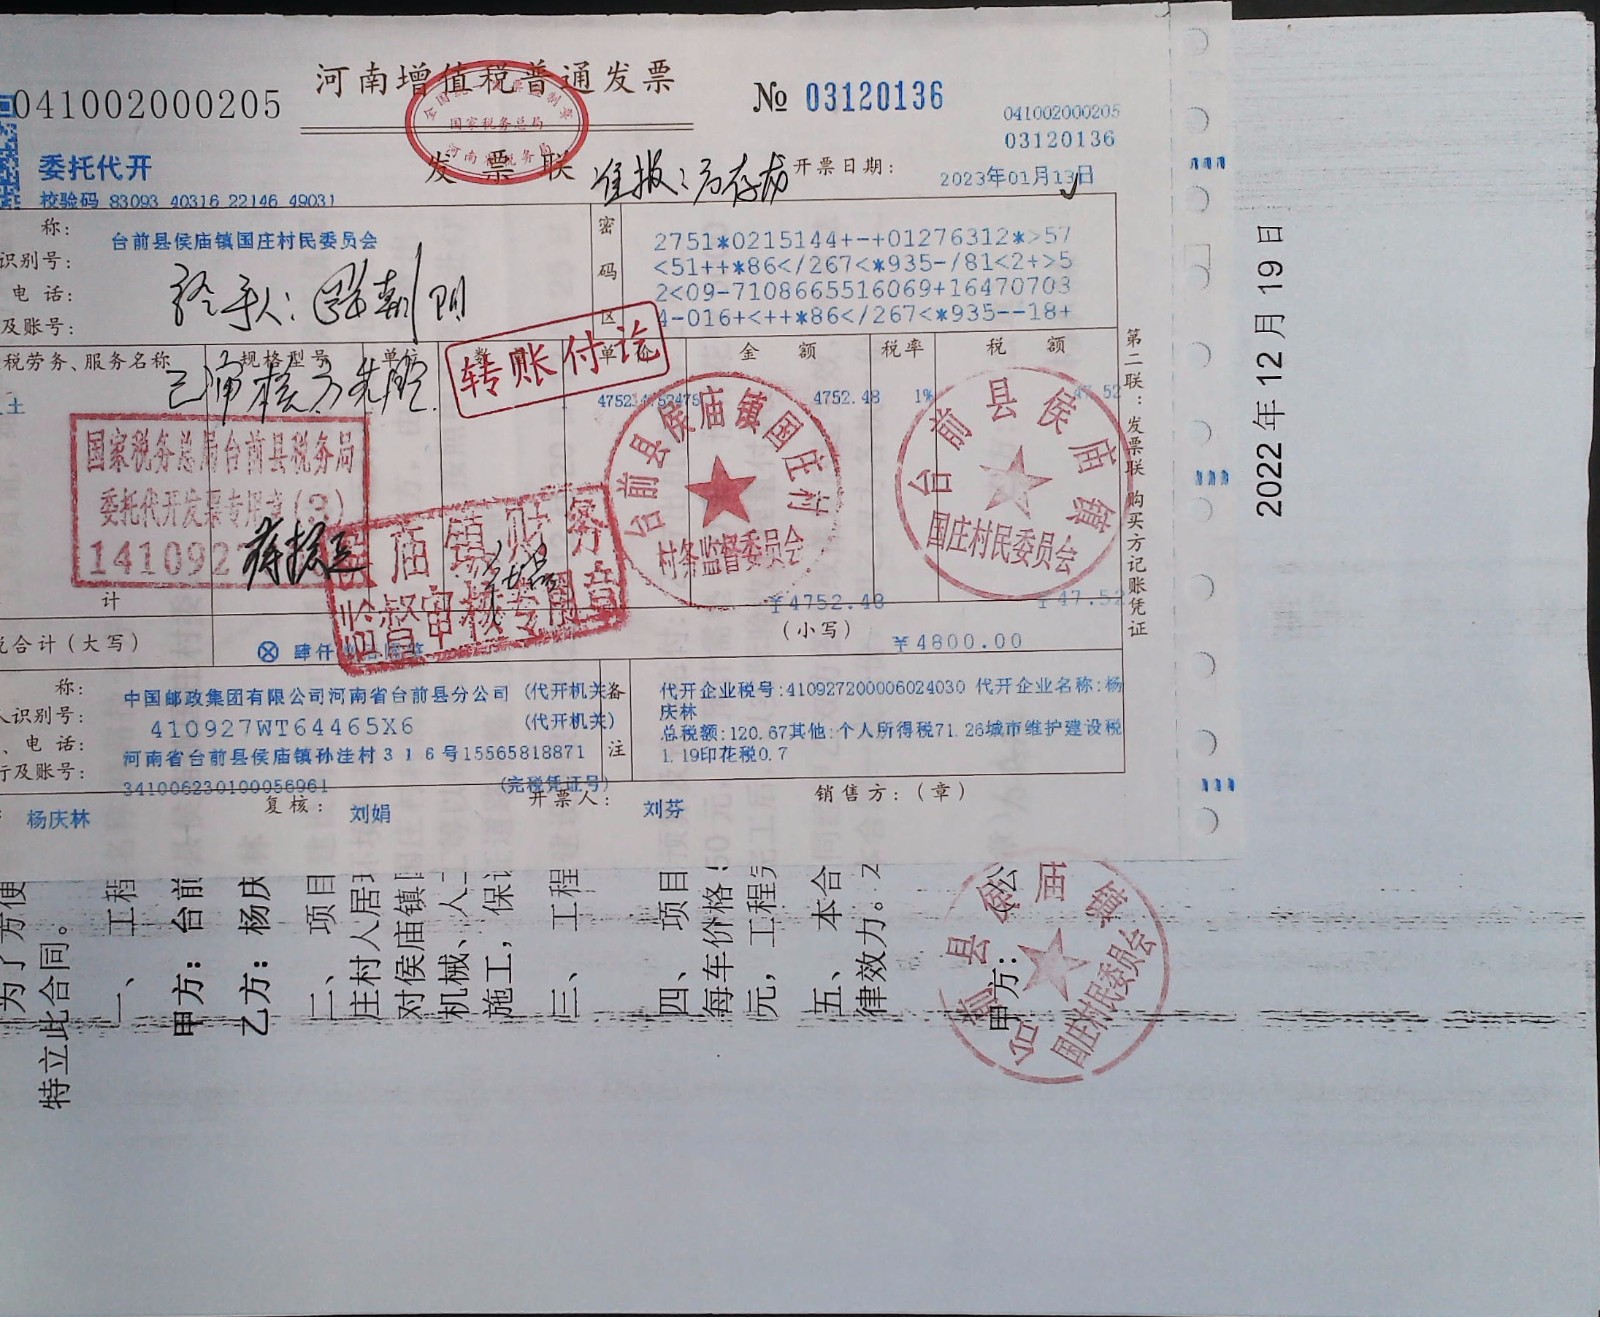 河南增值税普通发票
041002000205
No 03120136
041002000205
03120136
委托代开
发票联
全国统一发票监制章
国家税务总局
河南省税务局
准报:
开票日期:
2023年01月13日
校验码 83093 40316 22146 49031
称:
台前县侯庙镇国庄村民委员会
识别号:
电话:
及账号:
经手人:
密码区
2751*0215144+-+01276312*>57
<51++*86</267<*935-/81<2+>5
2<09-7108665516069+16470703
4-016+<++*86</267<*935--18+
转账付讫
税劳务、服务名称
规格型号
单位
数
单价
金额
税率
税额
已审核
土
4752.48
1%
47.52
国家税务总局台前县税务局
委托代开发票专用章(3)
141092
侯庙镇财务
监督审核专用章
台前县侯庙镇国庄村
村务监督委员会
台前县侯庙镇
国庄村民委员会
计
￥4752.48
￥47.52
税合计(大写)
肆仟
(小写)
￥4800.00
称:
中国邮政集团有限公司河南省台前县分公司 (代开机关
人识别号:
410927WT64465X6 (代开机关)
、电话:
河南省台前县侯庙镇孙洼村316号15565818871
行及账号:
341006230100056961 (完税凭证号)
备注
代开企业税号:410927200006024030 代开企业名称:杨
庆林
总税额:120.67其他:个人所得税71.26城市维护建设税
1.19印花税0.7
杨庆林
复核:
刘娟
开票人:
刘芬
销售方:(章)
第二联:发票联 购买方记账凭证
2022年12月19日
为了方便
特立此合同。
一、 工程
甲方: 台前
乙方: 杨庆
二、 项目
庄村人居环
对侯庙镇国
机械、人工
施工,保证
三、 工程
四、 项目
每车价格:
元,工程完
五、 本合
律效力。2
甲方:
台前县侯庙镇
国庄村民委员会